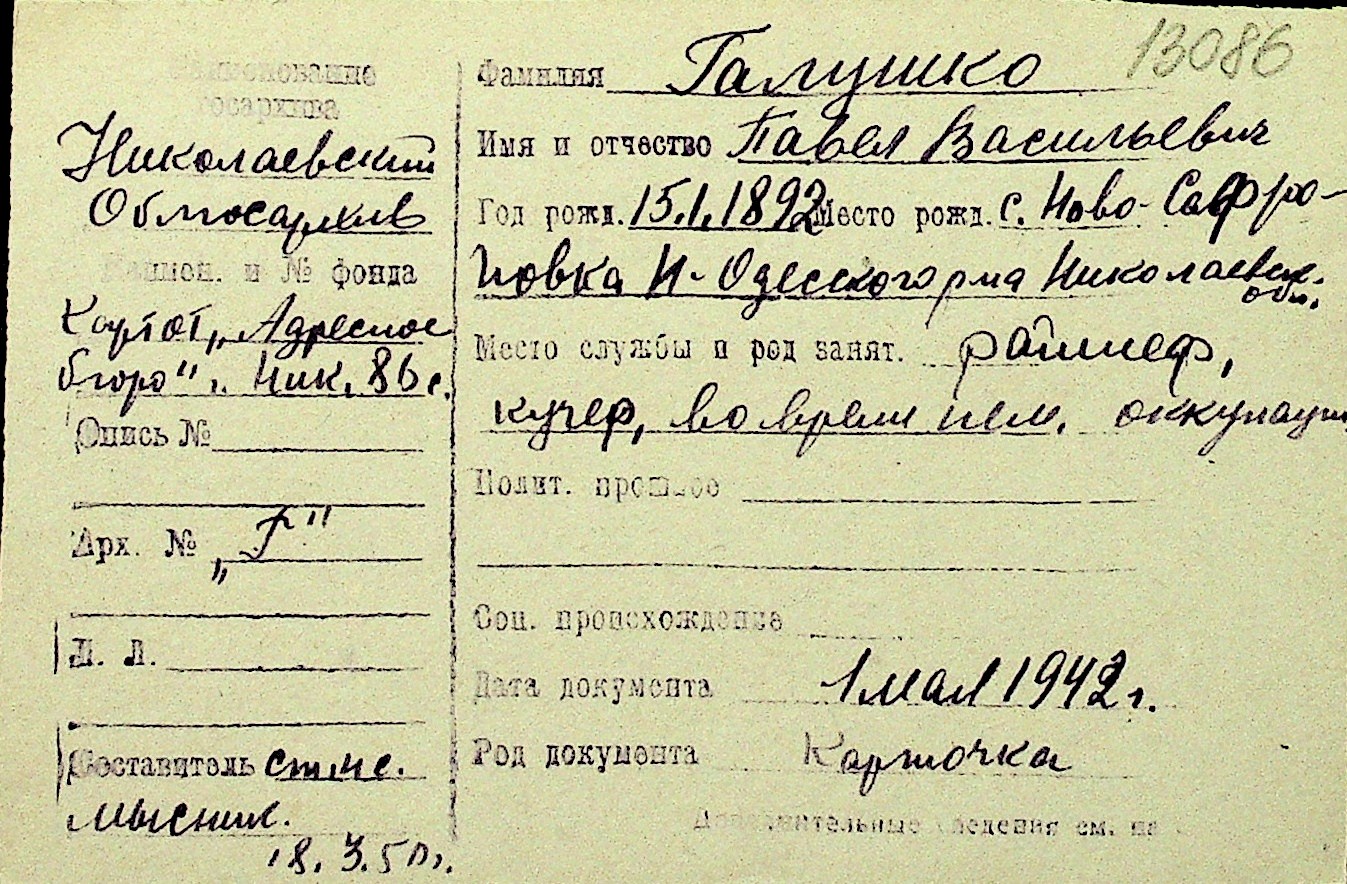 13086
Наименование
госархива
Николаевский
Облгосархив
Наимен. и № фонда
Картот. „Адресное
бюро" г. Ник. 86 г.
Опись №
Арх. № „Г"
Л. Л.
Составитель ст. н. с.
Мысник.
18.3.50 г.
Фамилия Галушко
Имя и отчество Павел Васильевич
Год рожд. 15.1.1892 Место рожд. с. Ново-Сафро-
новка Н-Одесского р-на Николаевск.
обл.
Место службы и род занят.
кучер, во время нем. оккупации
Полит. прошлое
Соц. происхождение
Дата документа 1 мая 1942 г.
Род документа Карточка
Дополнительные сведения см. на